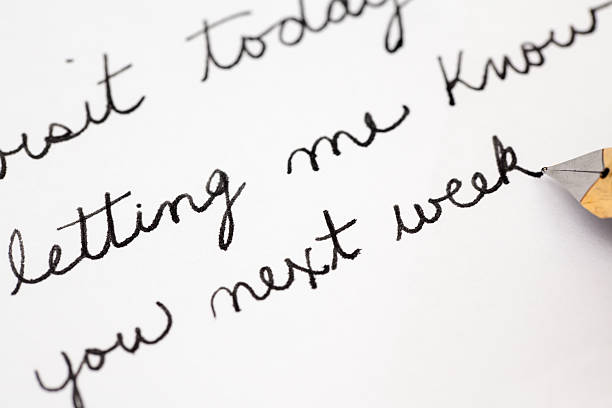 visit today
letting me know
you next week